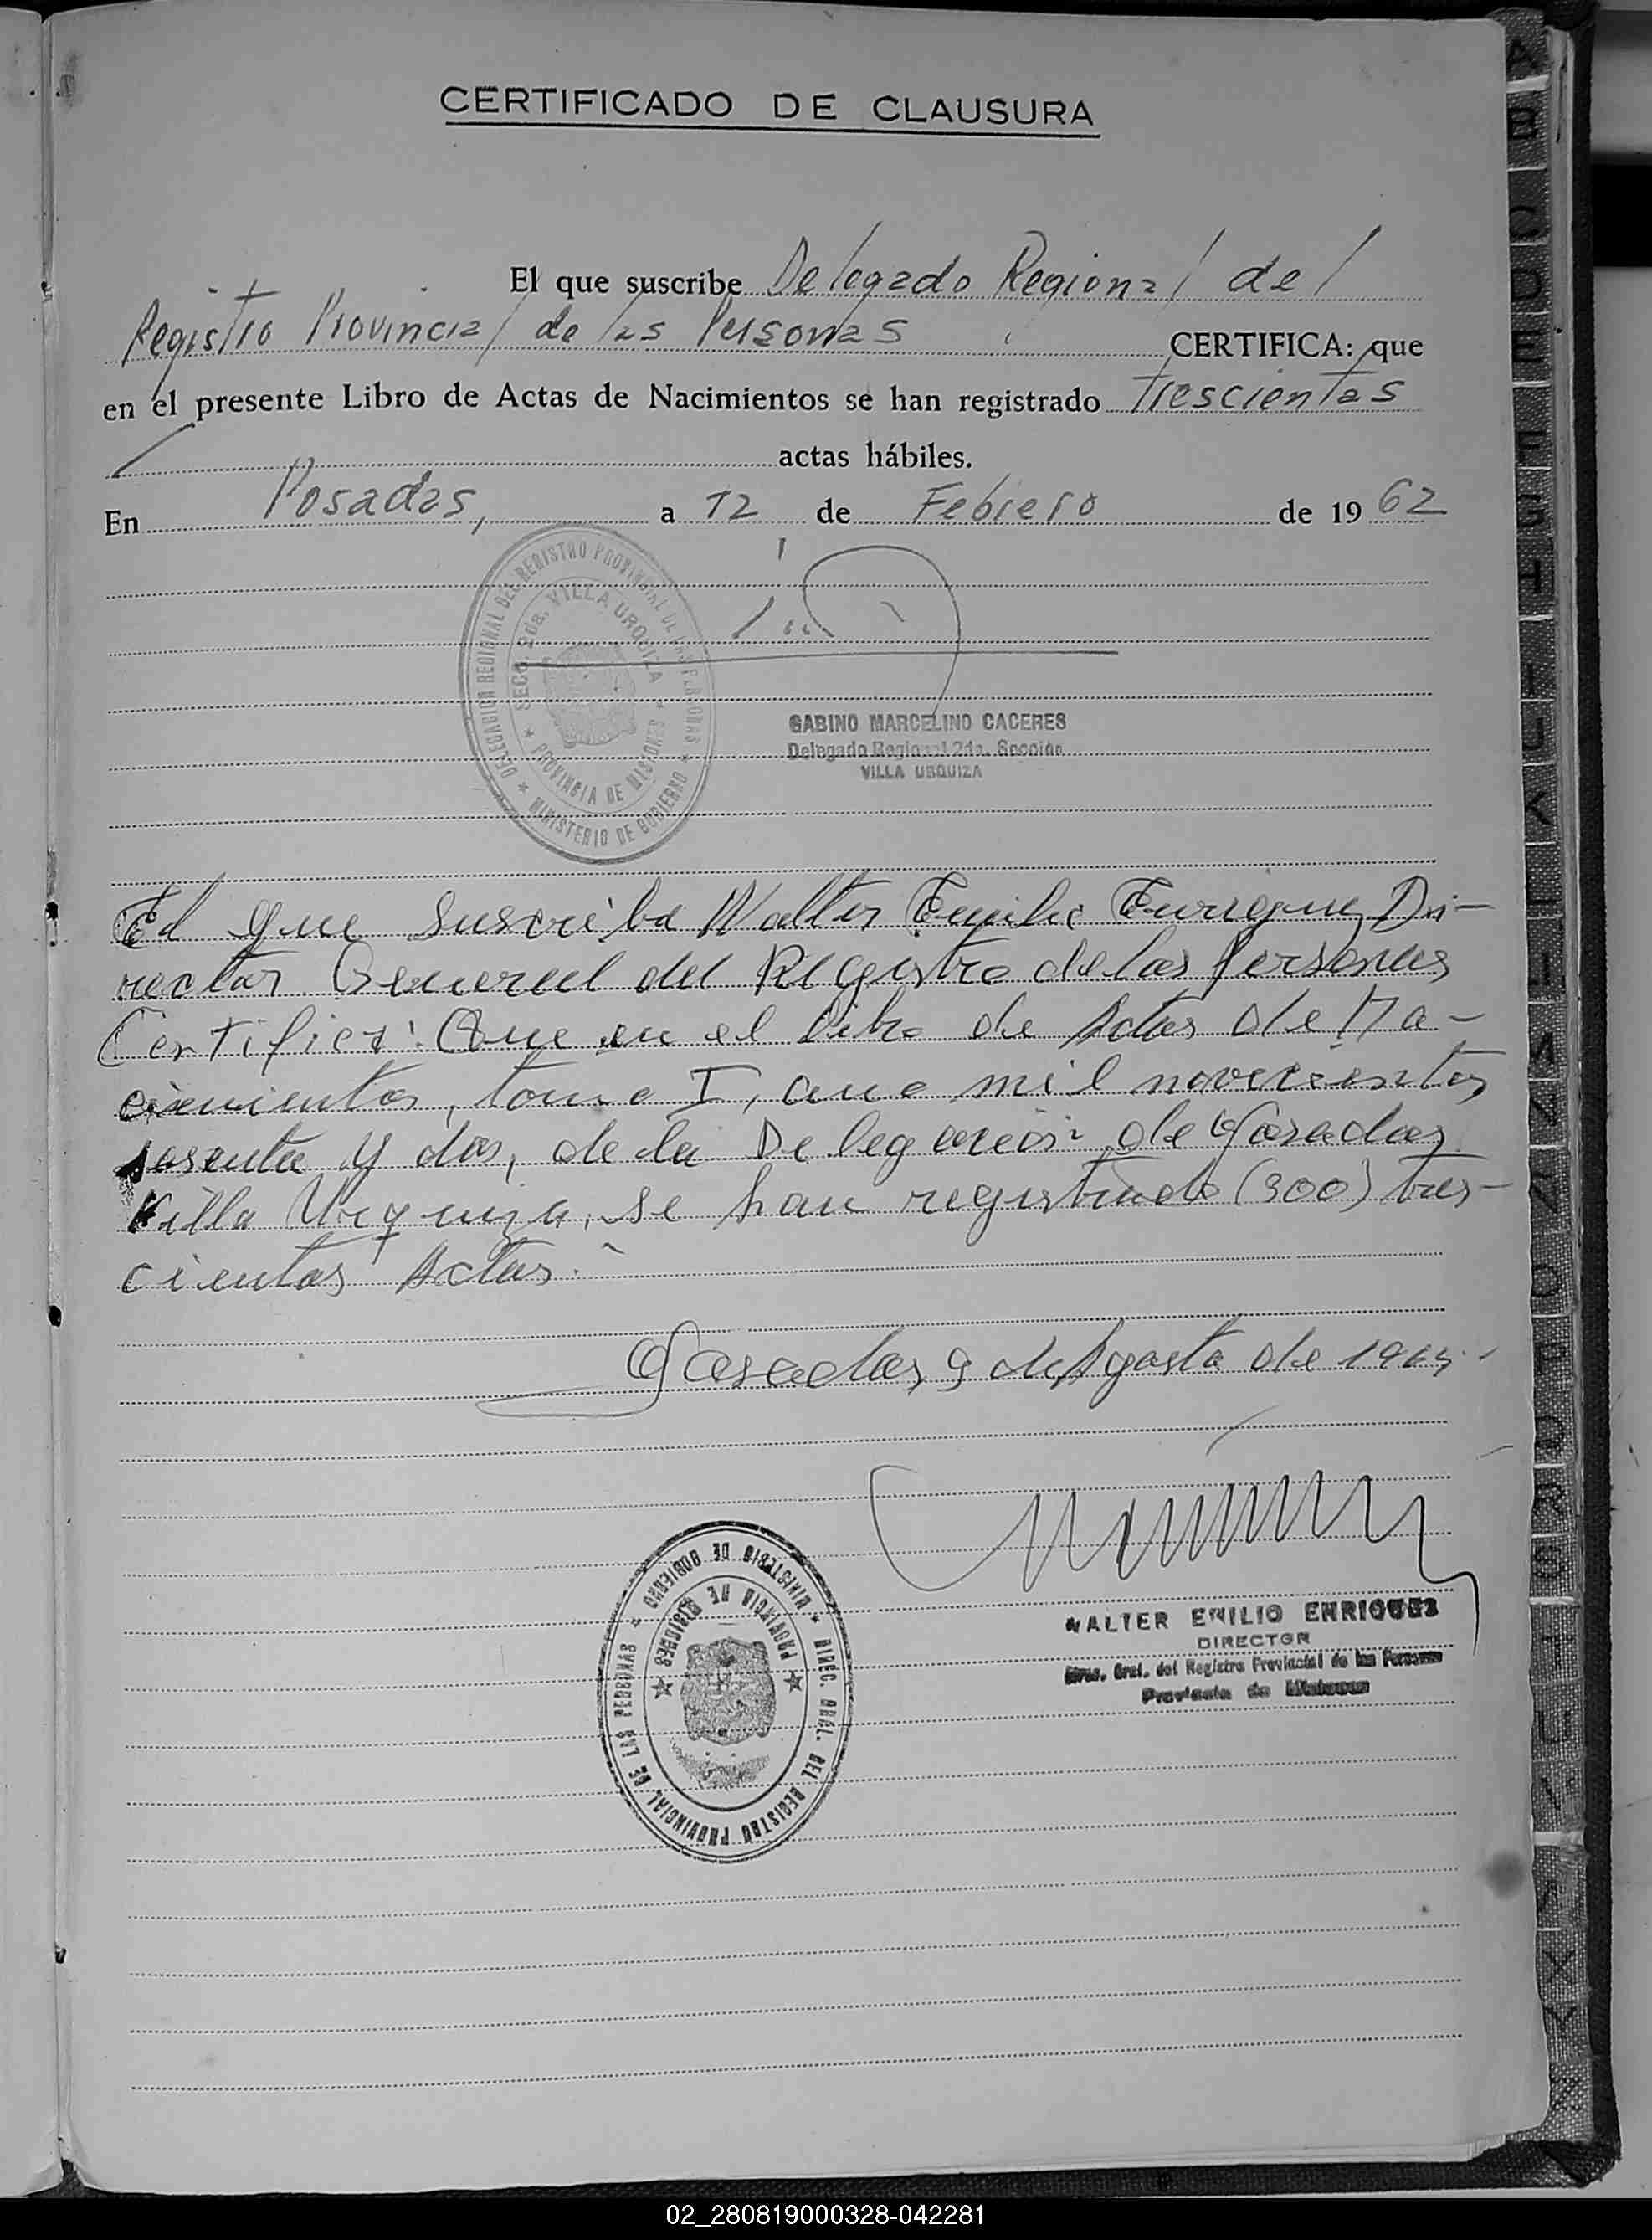 CERTIFICADO DE CLAUSURA
El que suscribe Delegado Regional del
Registro Provincial de las Personas CERTIFICA: que
en el presente Libro de Actas de Nacimientos se han registrado Trescientas
actas hábiles.
En Posadas, a 12 de Febrero de 1962
DELEGACION REGIONAL DEL REGISTRO PROVINCIAL DE LAS PERSONAS
SECC. 2da. VILLA URQUIZA
PROVINCIA DE MISIONES
MINISTERIO DE GOBIERNO
GABINO MARCELINO CACERES
Delegado Regional 2da. Sección
VILLA URQUIZA
El que suscribe Walter Emilio Enriquez Di-
rector General del Registro de las Personas
Certifica: Que en el libro de Actas de Na-
cimientos, tomo I, año mil novecientos
sesenta y dos, de la Delegación de Posadas
Villa Urquiza, se han registrado (300) tres-
cientas Actas.
Posadas, 9 de Agosto de
MINISTERIO DE GOBIERNO
PROVINCIA DE MISIONES
DIREC. GRAL. DEL REGISTRO PROVINCIAL DE LAS PERSONAS
WALTER EMILIO ENRIQUEZ
DIRECTOR
Direc. Gral. del Registro Provincial de las Personas
Provincia de Misiones
A
B
C
D
E
F
G
H
I
J
K
L
M
N
Ñ
O
P
Q
R
S
T
U
V
X
Y
Z
02_280819000328-042281